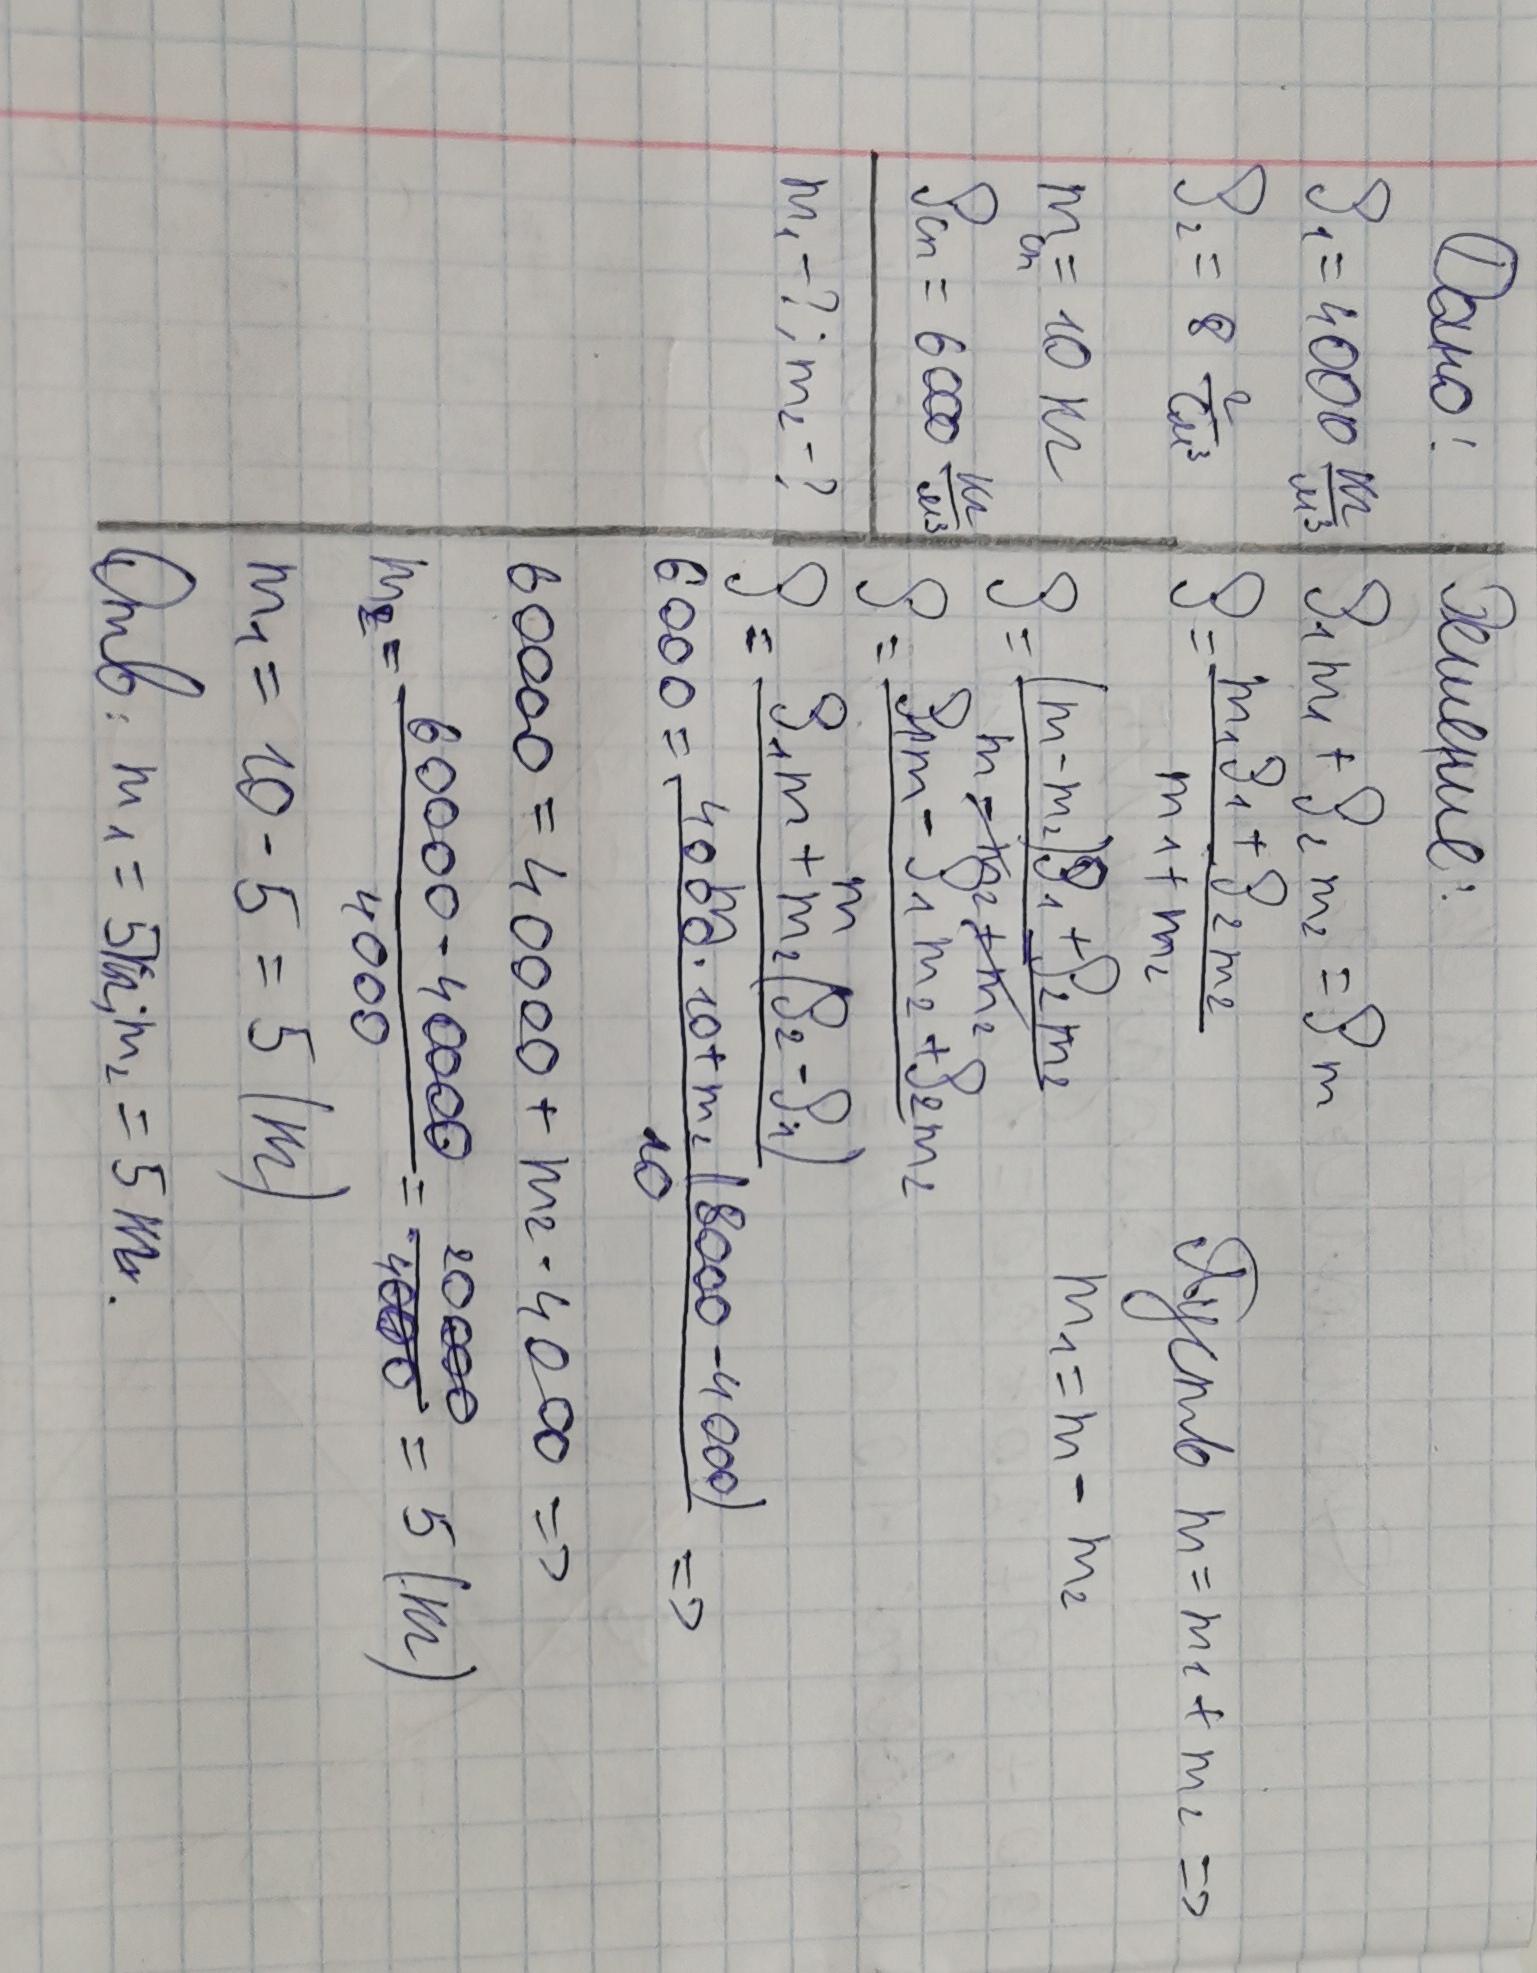 Дано:
ρ₁ = 4000 кг/м³
ρ₂ = 8 г/см³
m сп = 10 кг
ρсп = 6000 кг/м³
m₁ - ?; m₂ - ?
Решение:
ρ₁m₁ + ρ₂m₂ = ρm
ρ = (m₁ρ₁ + ρ₂m₂)/(m₁ + m₂)
Пусть m = m₁ + m₂ =>
m₁ = m - m₂
ρ = ((m - m₂)ρ₁ + ρ₂m₂)/(m - m₂ + m₂)
ρ = (ρ₁m - ρ₁m₂ + ρ₂m₂)/m
ρ = (ρ₁m + m₂(ρ₂ - ρ₁))/m
6000 = (4000 · 10 + m₂(8000 - 4000))/10 =>
60000 = 40000 + m₂ · 4000 =>
m₂ = (60000 - 40000)/4000 = 20000/4000 = 5 (кг)
m₁ = 10 - 5 = 5 (кг)
Отв: m₁ = 5кг; m₂ = 5 кг.